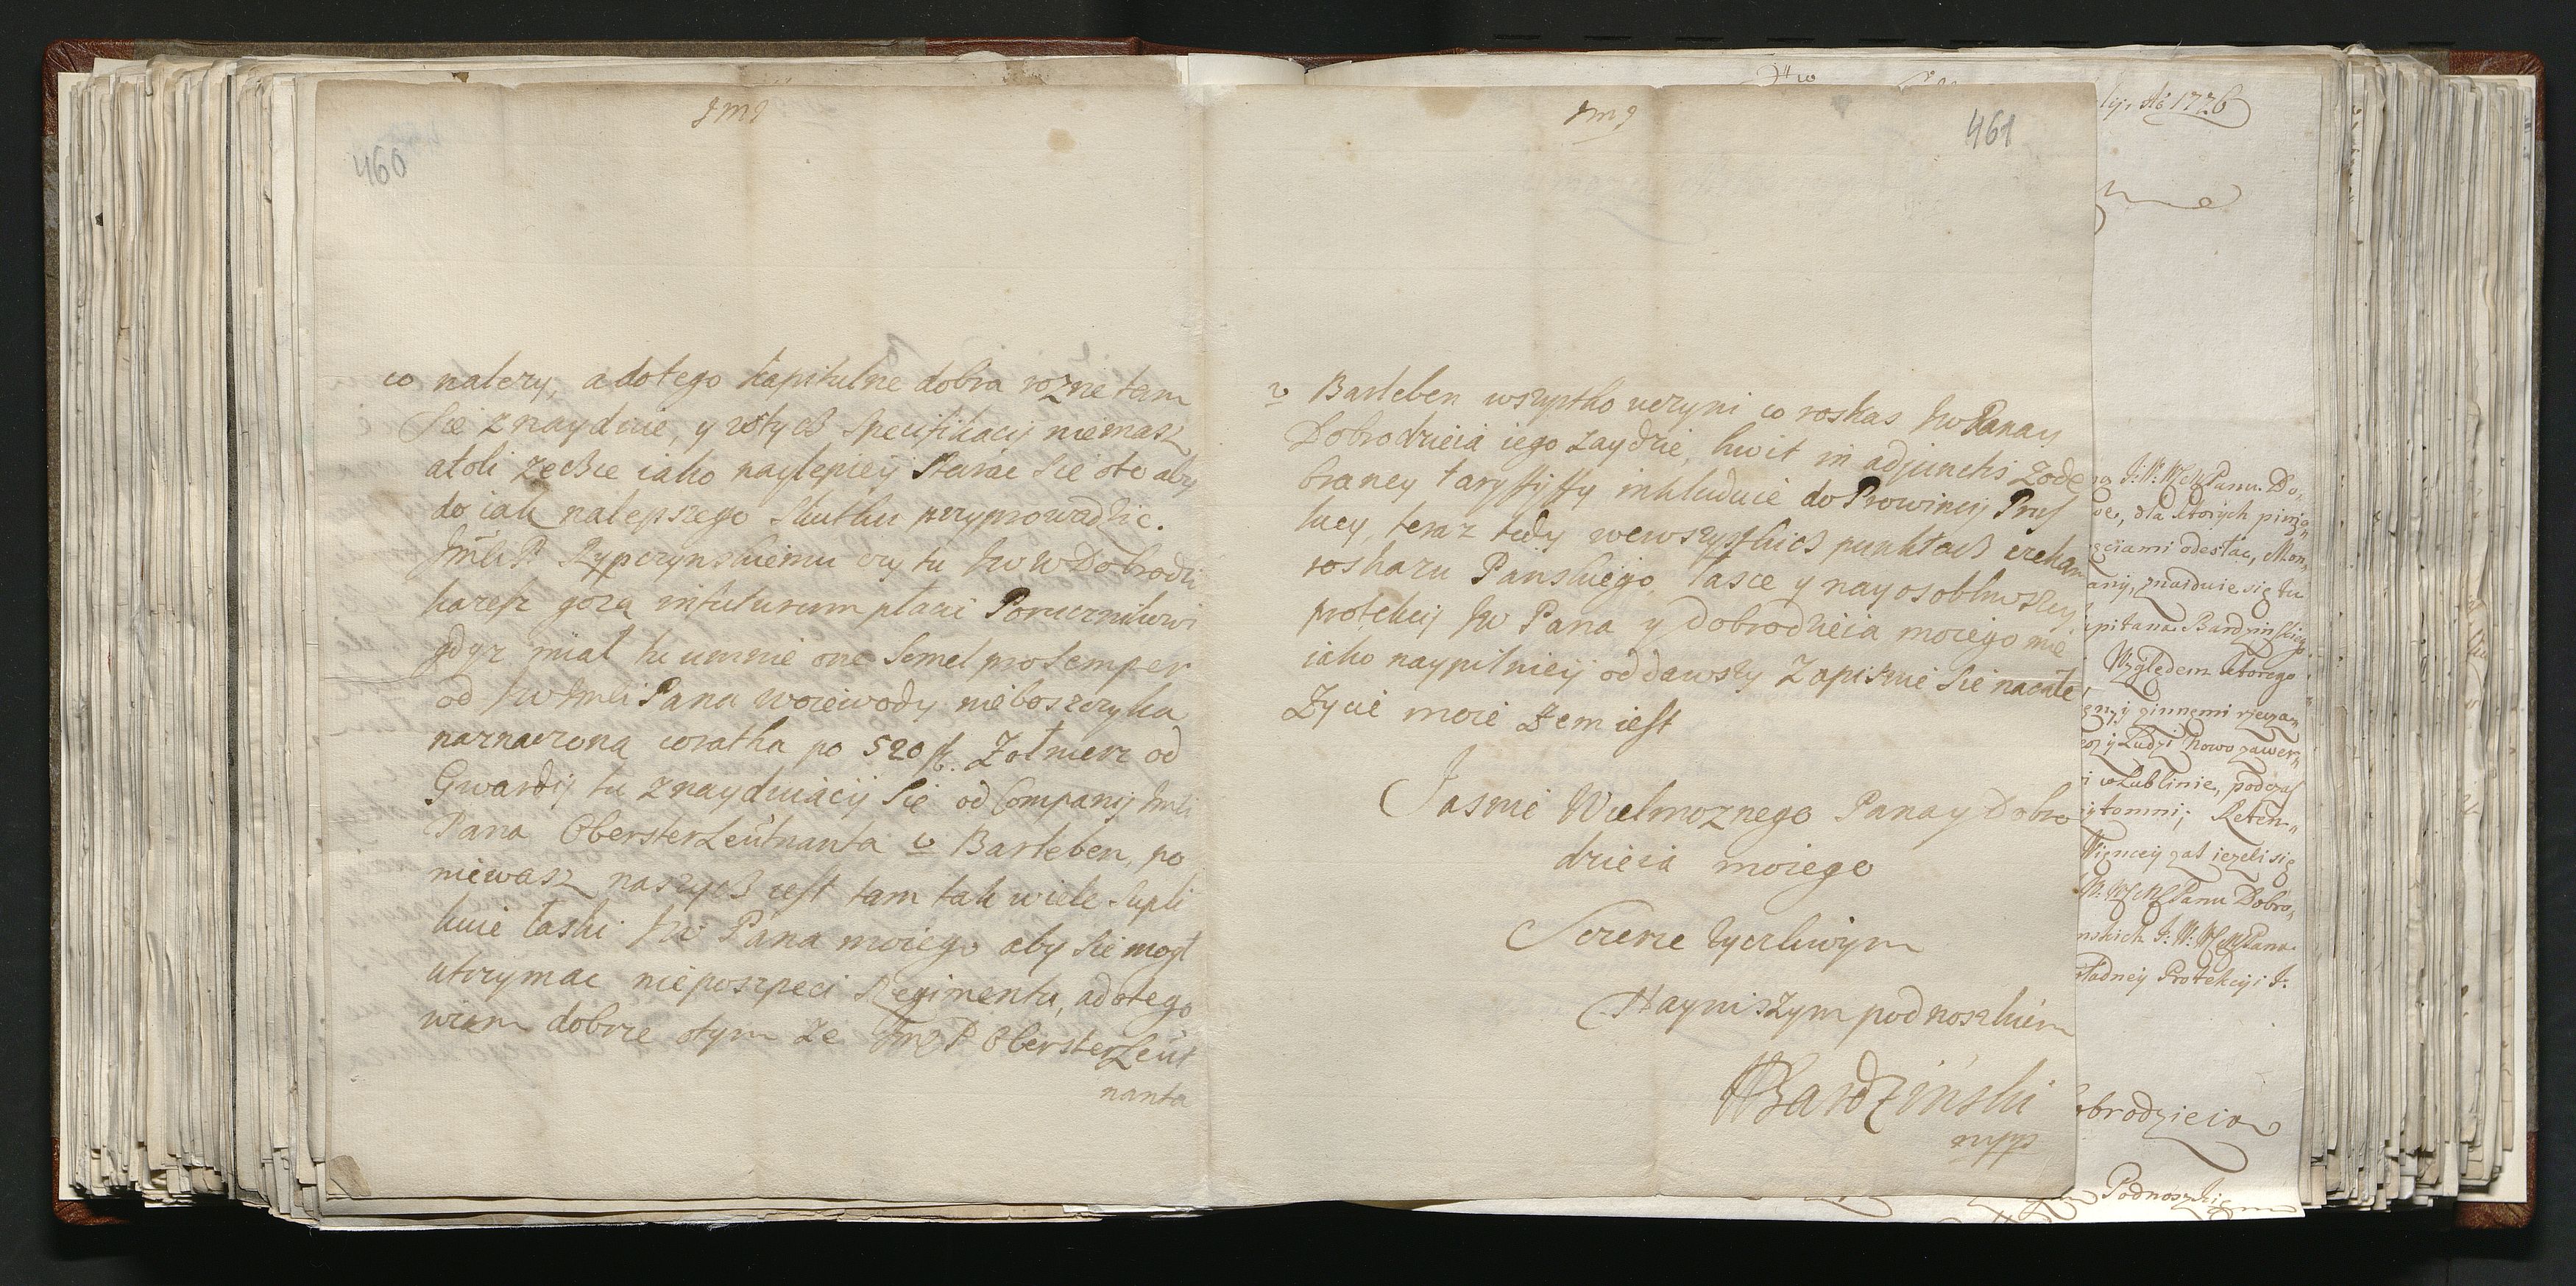 JMJ
460
co nalezy, a dotego kapitulne dobra rozne tam
Sie znayduie, y wtych Specifikacij niemasz
atoli zechce iako naylepieij Starac Sie oto aby
do iak nalepszego Skutku przyprowadzic.
JmCi P. Zypczynskiemu czy tu JwW Dobrodzi
kazesz gozą infuturum płacic Porucznikowi
gdyz miał tu umnie one Semel pro Semper
od Jw JmCi Pana Woiewody nieboszczyka
naznaczoną wratka po 520 fl. Zołnierz od
Gwardij tu znayduiącij Sie od Companij JmCi
Pana ObersterLeütnanta v Barleben, po
niewasz naszych iest tam tak wiele Supli
kuie łaski Jw Pana moiego aby Sie mogł
utrzymac nieposzpeci Regimentu, adotego
wiem dobrze otym ze Jmo P ObersterLeüt
nanta
JMJ
461
v Barleben wszystko uczyni co roskas Jw Pana y
Dobrodzieia iego zaydzie, kwit in adjunctis zode
braney taryffyffy inkluduie do Prowincij Prus
kiey, teraz tedy wewszystkich punktach czekam
roskazu Panskiego, łasce y nayosobliwszey
protekcij Jw Pana y Dobrodzieia moiego mie
iako naypilnieij oddawszy Zapisuie Sie nacałe
Zycie moie Zem iest
Jasnie Wielmoznego Pana y Dobro
dzieia moiego
Szczerze zyczliwym
Nayniszym podnoszkiem
Bardziński
mpp
lij, dto 1726
J: W: WMM Panu Do,
dla ktorych pinią,,
ęciami odesłac, Mon,
any, znaiduie się tu
apitana Bardzinskiego
Względem ktorego
y innemi rzeczą,,
y Ludzi nowo zawer,,
i w Lublinie, podczas
ytomni; Reten,,
Więncey zas iezeli się
W: WMM Panu Dobro,
nskich J: W: WMM Pana
ładney Protekcyi J.
obrodzieia
Podnoszkiem